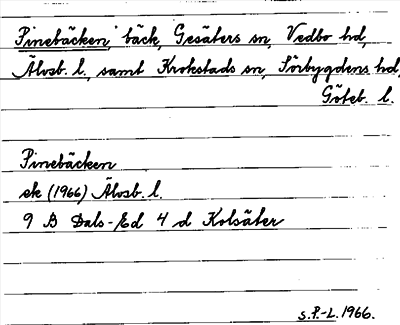 Pinebäcken, bäck, Gesäters sn, Vedbo hd,
Älvsb. l., samt Krokstads sn, Sörbygdens hd,
Göteb. l.
Pinebäcken
ek (1966) Älvsb. l.
9 B Dals-Ed 4 d Kolsäter
S.P.-L. 1966.